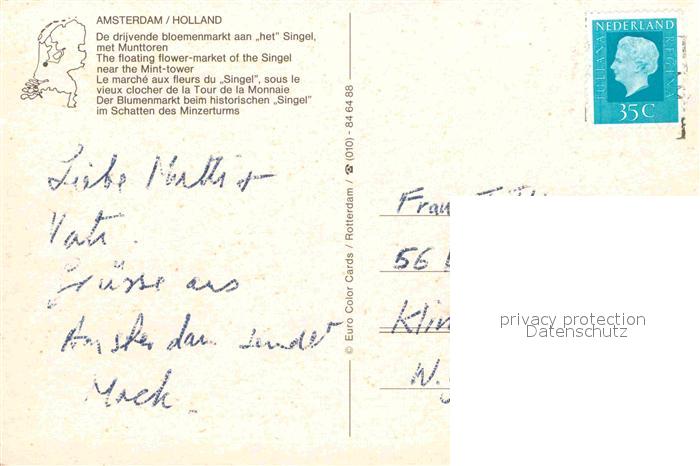 AMSTERDAM / HOLLAND
De drijvende bloemenmarkt aan „het" Singel,
met Munttoren
The floating flower-market of the Singel
near the Mint-tower
Le marché aux fleurs du „Singel", sous le
vieux clocher de la Tour de la Monnaie
Der Blumenmarkt beim historischen „Singel"
im Schatten des Minzerturms
© Euro Color Cards / Rotterdam / ☎ (010) - 84 64 88
NEDERLAND
JULIANA
REGINA
35 C
Liebe Mutti +
Vati.
Grüsse aus
Amsterdam sendet
Frau
56
Klin
W.
privacy protection
Datenschutz